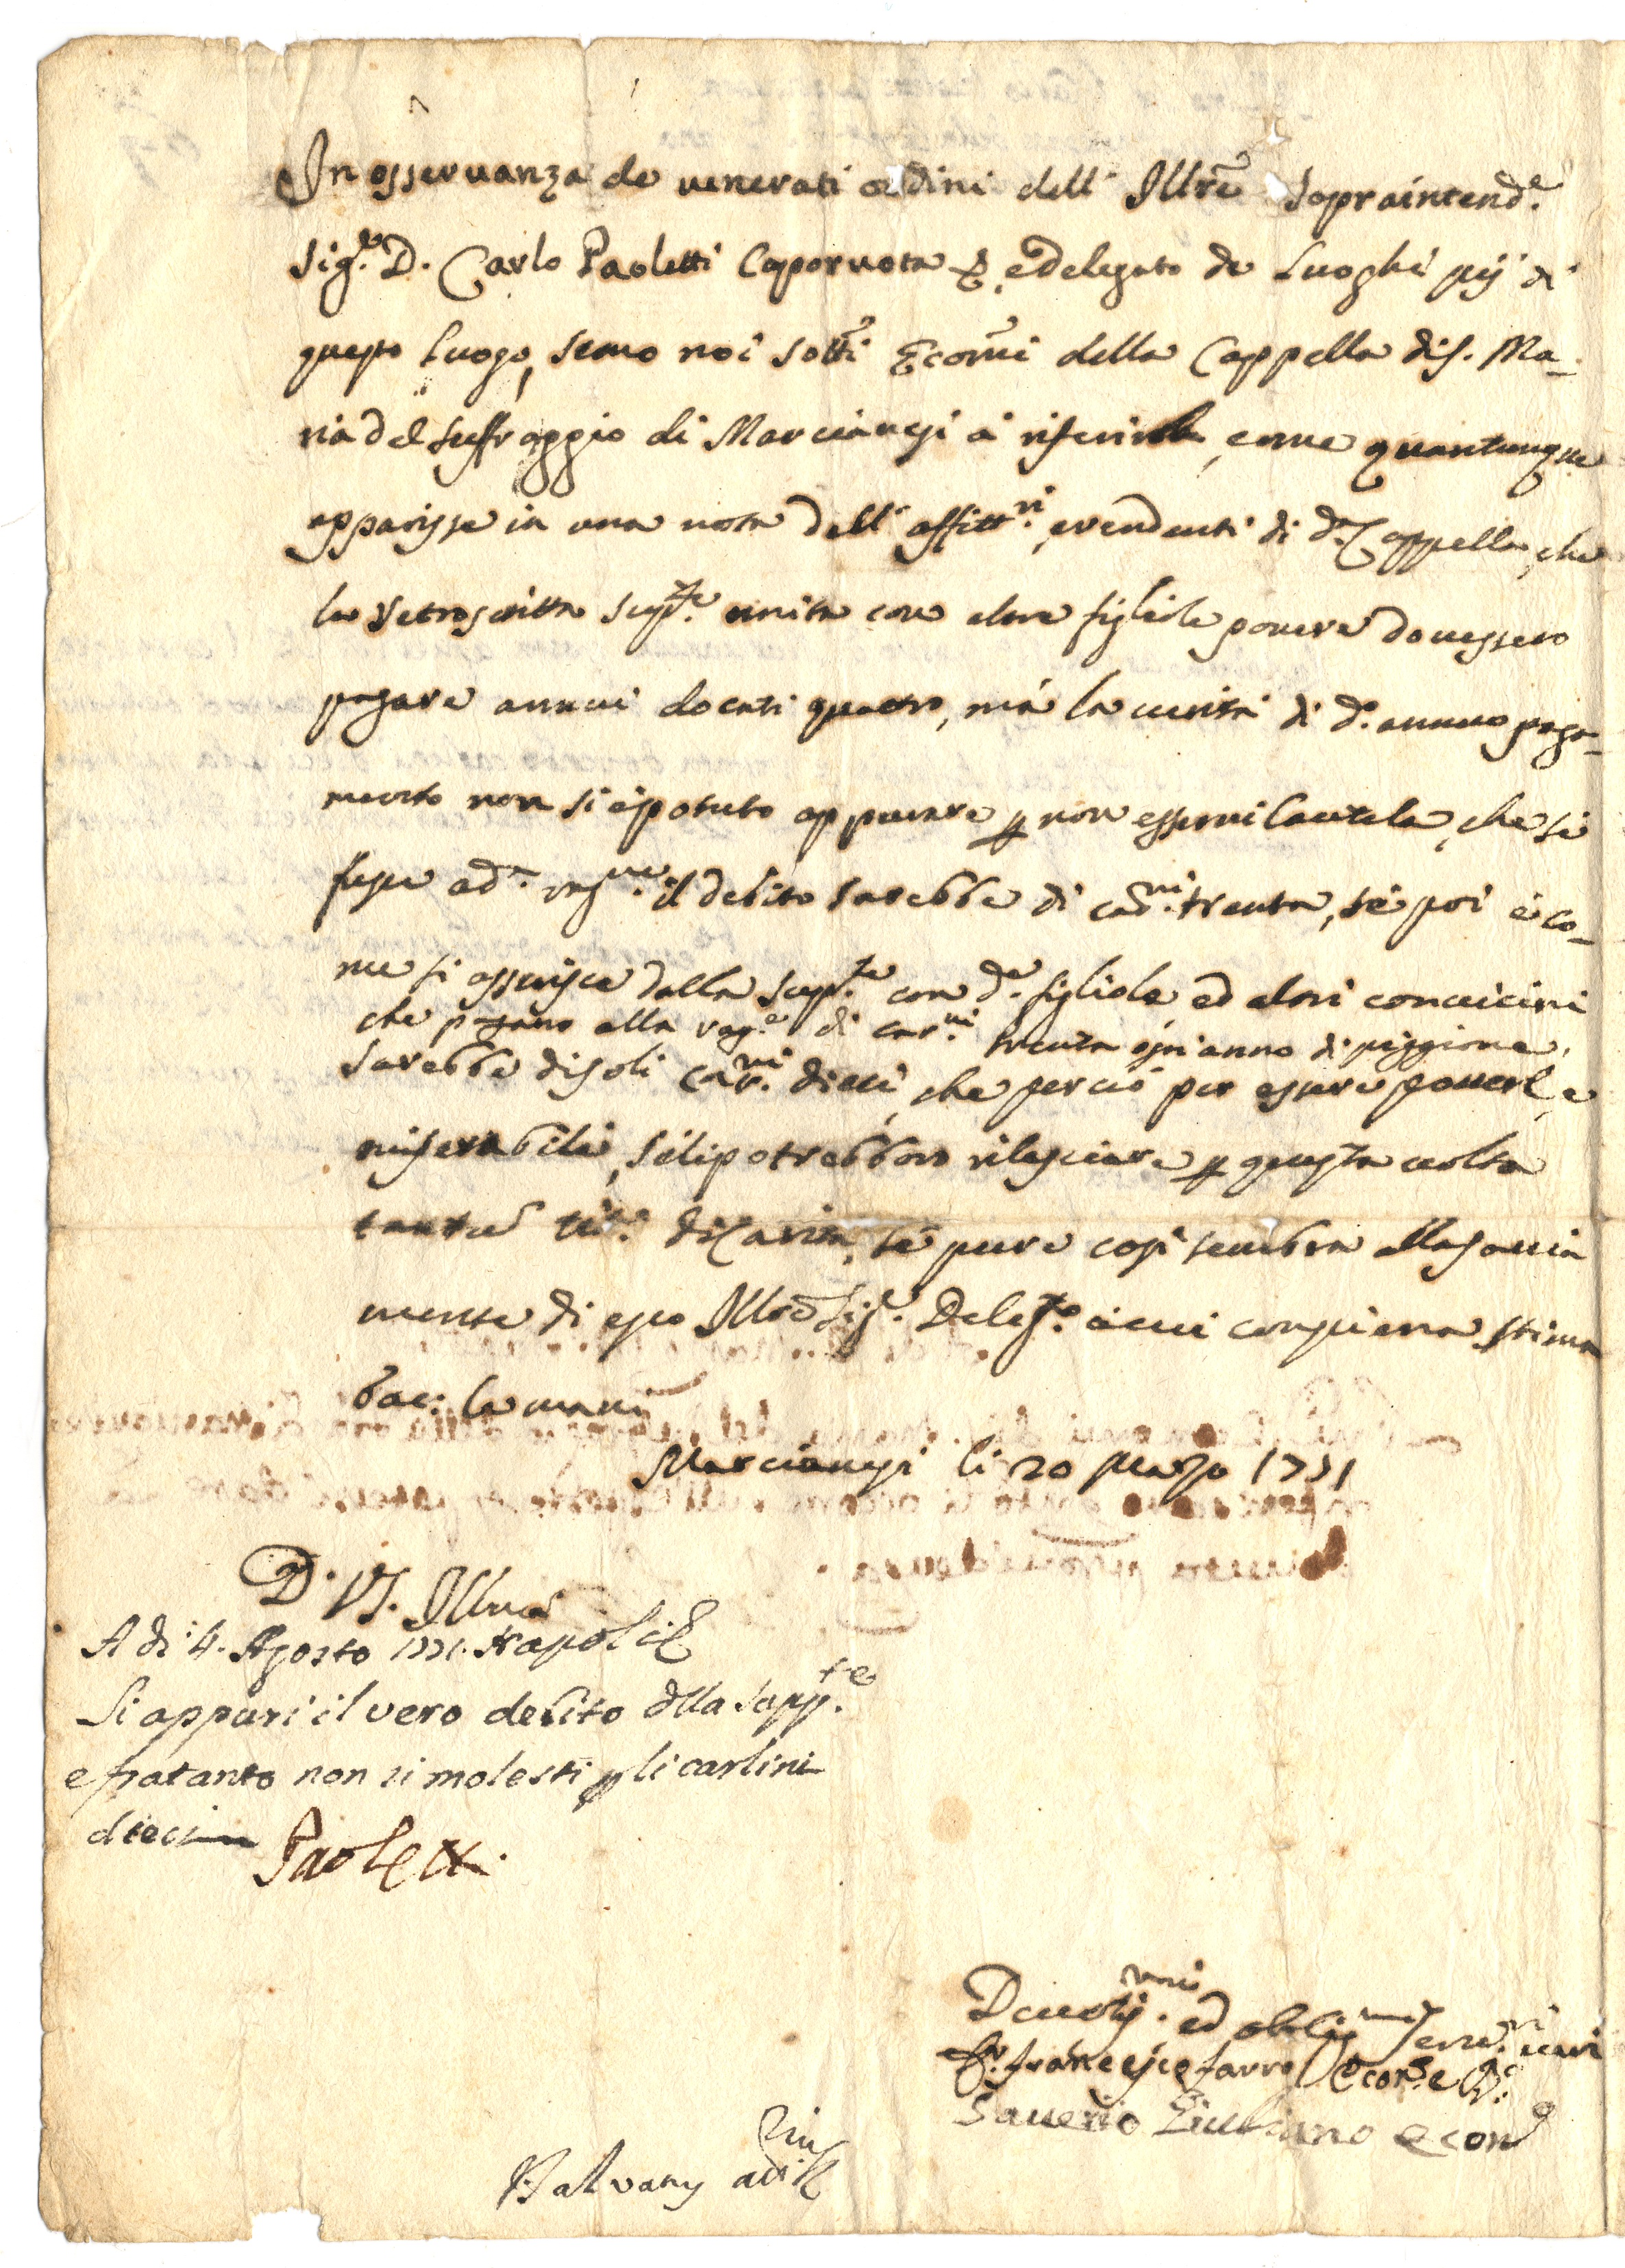 In osservanza de venerati ordini dell' Ill.re sopraintend.e
Sig.re D. Carlo Paoletti Caporuota &, e delegato de Luoghi pij di
questo Luogo, semo noi sott.i Econ.mi della Cappella di S. Ma-
ria del Suffraggio di Marcianesi a riferirle, come quantunque
apparisse in una nota dell' affitt.ri, e rendenti di d.a Cappella, che
la retroscritta supp.te unita con altre figliole povere dovessero
pagare annui docati quattro, mà la verità di d.o annuo paga-
mento non si è potuto appurare p non esservi cautela, che se
fusse a d.a rag.ne il debito sarebbe di car.ni trenta, se poi è co-
me si asserisce dalla supp.te con d.e figliole ed altri convicini
che pagano alla rag.e di car.ni trenta ogn'anno di piggione,
sarebbe di soli car.ni dieci, che perciò per essere povere, e
miserabile, seli potrebbero rilasciare p questa volta
tantu tit.o di Carità, se pure così sembra alla savia
mente di esso Ill.re Sig.e Deleg.to a cui con piena stima
bac: le mani
Marcianesi li 20 Marzo 1771
D. V.S. Ill.ma
A di 4. Agosto 1771. Napoli &
Si appuri il vero debito dlla supp.te
e fratanto non si molesti p li carlini
dieci
Paoletti.
Devotis.mi ed oblig.mi serv.ri veri
Francesco farro Econ.e
Saverio Giuliano econ.o